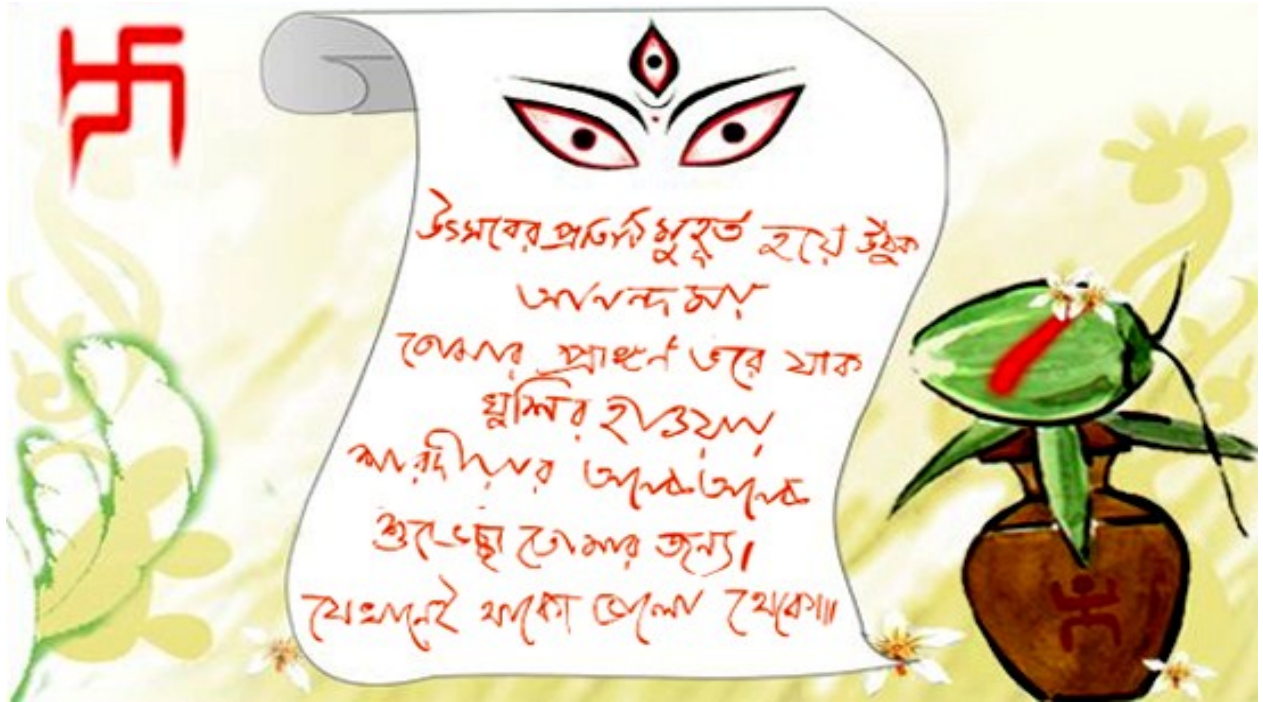 উৎসবের প্রতিটি মুহূর্ত হয়ে উঠুক
আনন্দময়
তোমার প্রাঙ্গণ ভরে যাক
খুশির হাওয়ায়
শারদীয়ার অনেক অনেক
শুভেচ্ছা তোমার জন্য।
যেখানেই থাকো ভালো থেকো॥